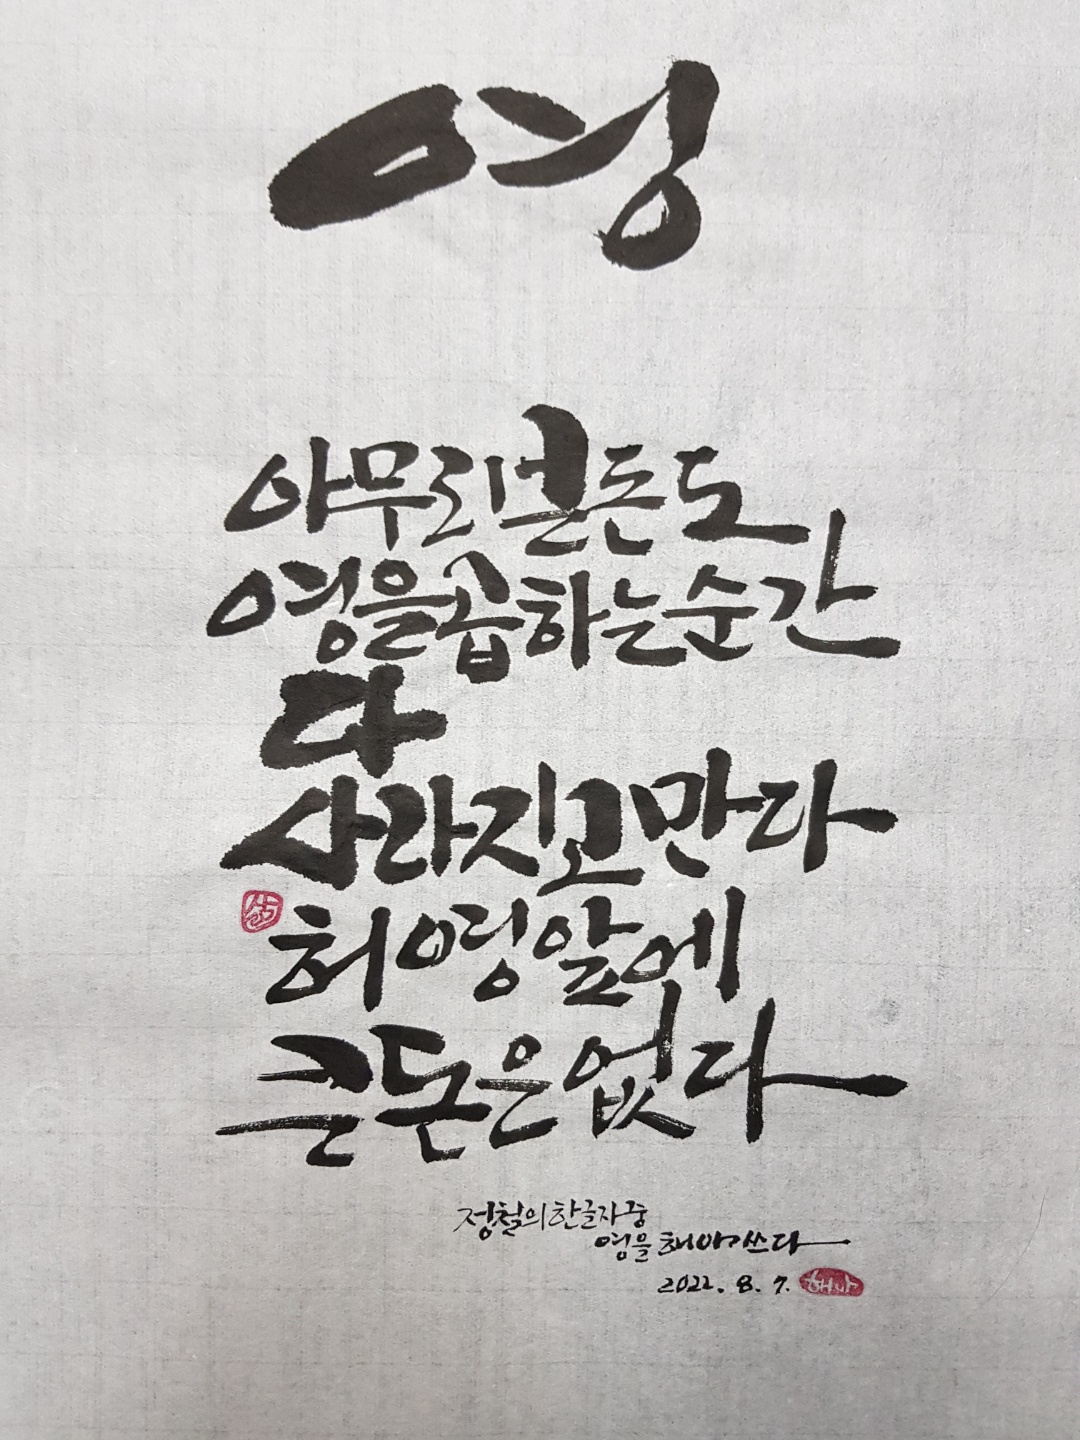 영
아무리 큰 돈도
영을 곱하는 순간
다
사라지고 만다
허영 앞에
큰 돈은 없다
정철의 한글자 중
영을 해아가 쓰다
2022. 8. 7. 해아